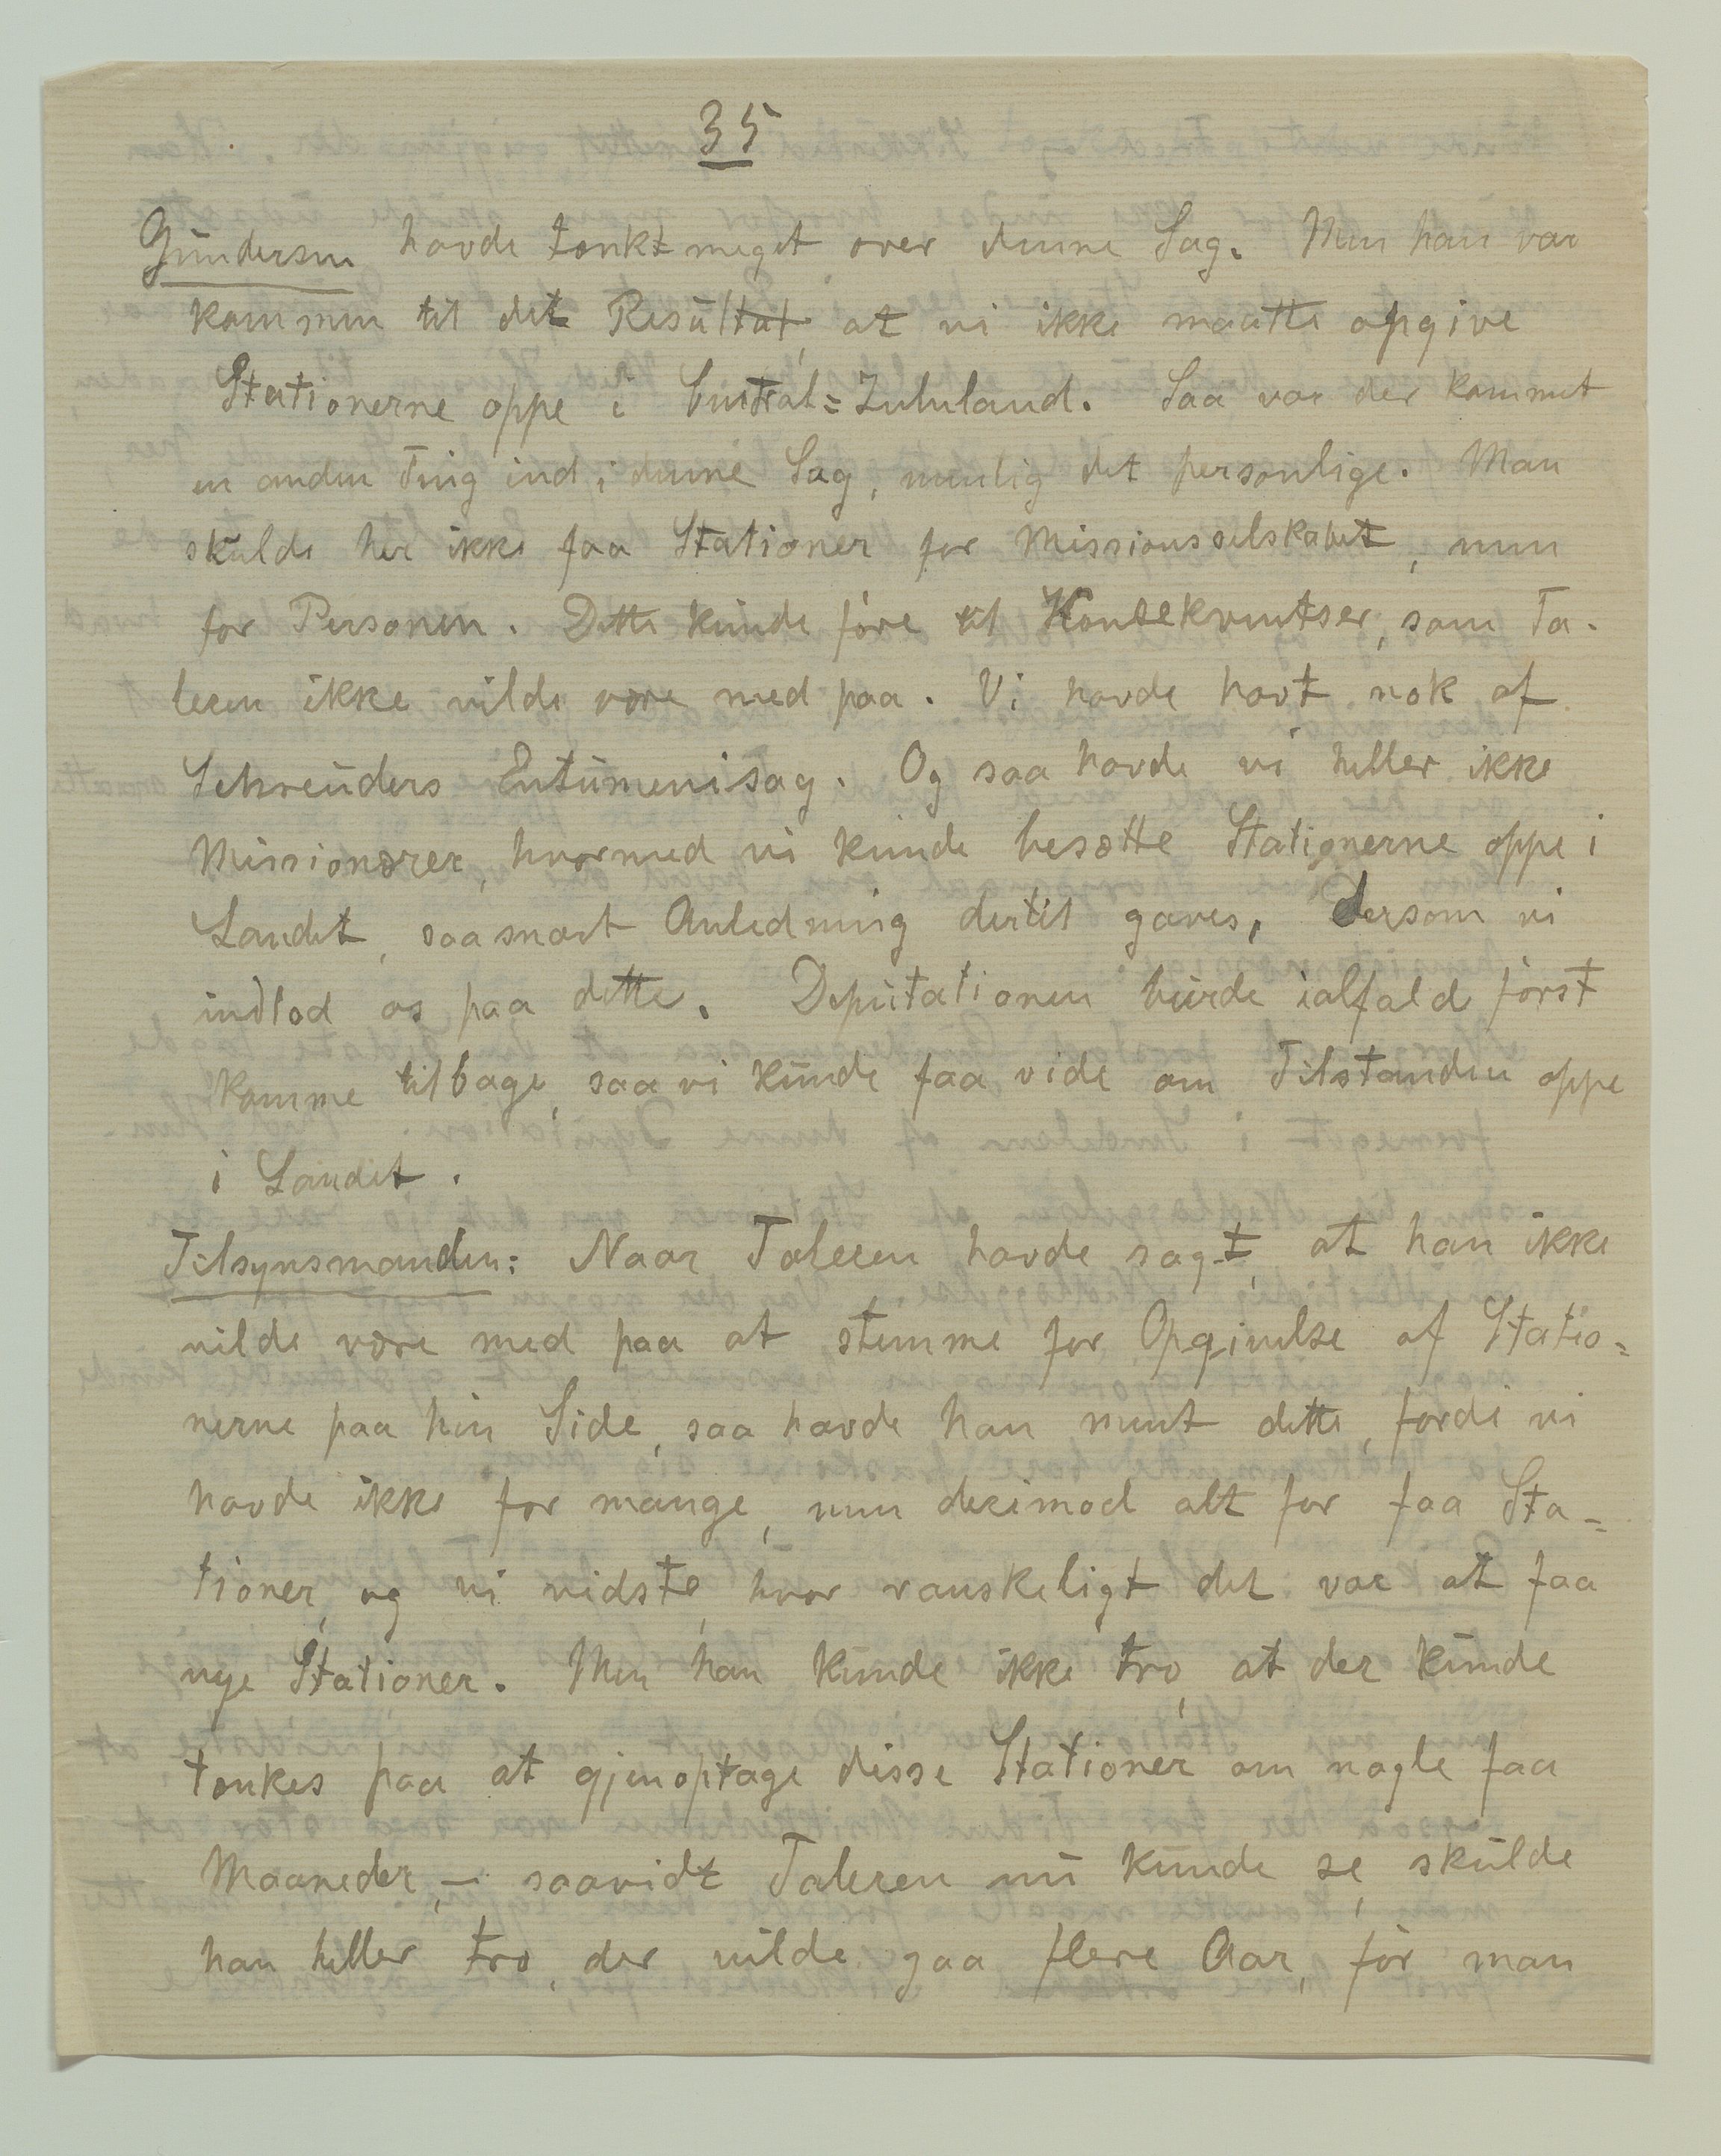 35
Gundersen havde tænkt meget over denne Sag. Men han var
kommen til det Resultat, at vi ikke maatte opgive
Stationerne oppe i Central=Zululand. Saa var der kommet
en anden Ting ind i denne Sag, nemlig det personlige. Man
skulde her ikke faa Stationer for Missionsselskabet, men
for Personen. Dette kunde føre til Konsekventser, som Ta-
leren ikke vilde være med paa. Vi havde havt nok af
Schreuders Entumenisag. Og saa havde vi heller ikke
Missionærer, hvormed vi kunde besætte Stationerne oppe i
Landet, saasnart Anledning dertil gaves, dersom vi
indlod os paa dette. Deputationen burde ialfald først
komme tilbage, saa vi kunde faa vide om Tilstanden oppe
i Landet.
Tilsynsmanden: Naar Taleren havde sagt, at han ikke
vilde være med paa at stemme for Opgivelse af Statio=
nerne paa hin Side, saa havde han ment dette, fordi vi
havde ikke for mange, men derimod alt for faa Sta=
tioner, og vi vidste, hvor vanskeligt det var at faa
nye Stationer. Men han kunde ikke tro, at der kunde
tænkes paa at gjenoptage disse Stationer om nogle faa
Maaneder, – saavidt Taleren nu kunde se, skulde
han heller tro, der vilde gaa flere Aar, før man